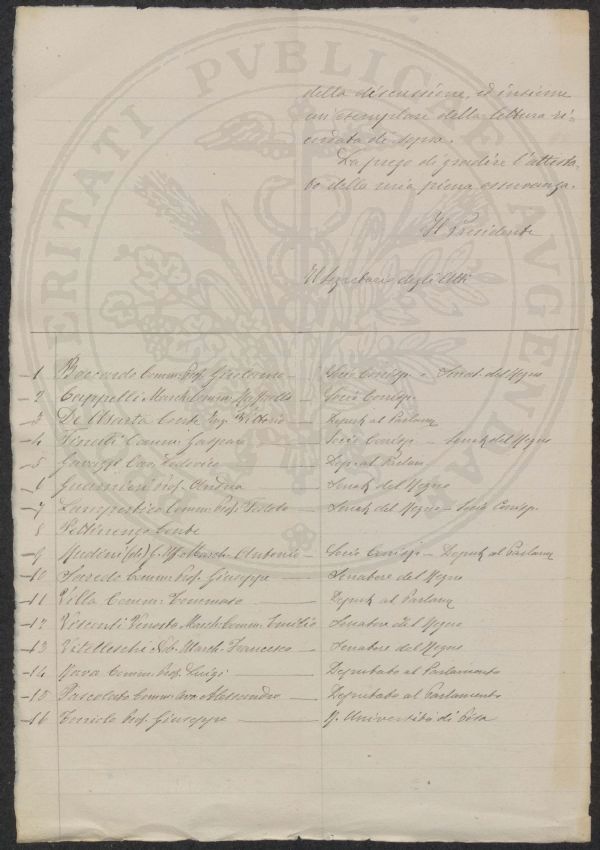 della discussione, ed insieme
un esemplare della lettura ri=
cordata di sopra.
La prego di gradire l'attesta-
to della mia piena osservanza.
Il Presidente
Il Segretario degli Atti
1 Boccardo Comm. Prof. Girolamo — Socio Corrisp. e Senat. del Regno
2 Cappelli March. Comm. Raffaello — Socio Corrisp.
3 De Asarta Conte Ing. Vittorio — Deput. al Parlam.
4 Finali Comm. Gaspare — Socio Corrisp. — Senat. del Regno
5 Cav. Federico — Dep. al Parlam.
6 Guarnieri Prof. Andrea — Senat. del Regno
7 Lampertico Comm. Prof. Fedele — Senat. del Regno — Socio Corrisp.
8 Pettinengo Conte
9 Rudinì (di) March. Antonio — Socio Corrisp. — Deput. al Parlam.
10 Saredo Comm. Prof. Giuseppe — Senatore del Regno
11 Villa Comm. Tommaso — Deput. al Parlam.
12 Visconti Venosta March. Comm. Emilio — Senatore del Regno
13 Vitelleschi Nob. March. Francesco — Senatore del Regno
14 Rava Comm. Prof. Luigi — Deputato al Parlamento
15 Pascolato Comm. Avv. Alessandro — Deputato al Parlamento
16 Toniolo Prof. Giuseppe — R. Università di Pisa
VERITATI PVBLICAE AVGENDAE